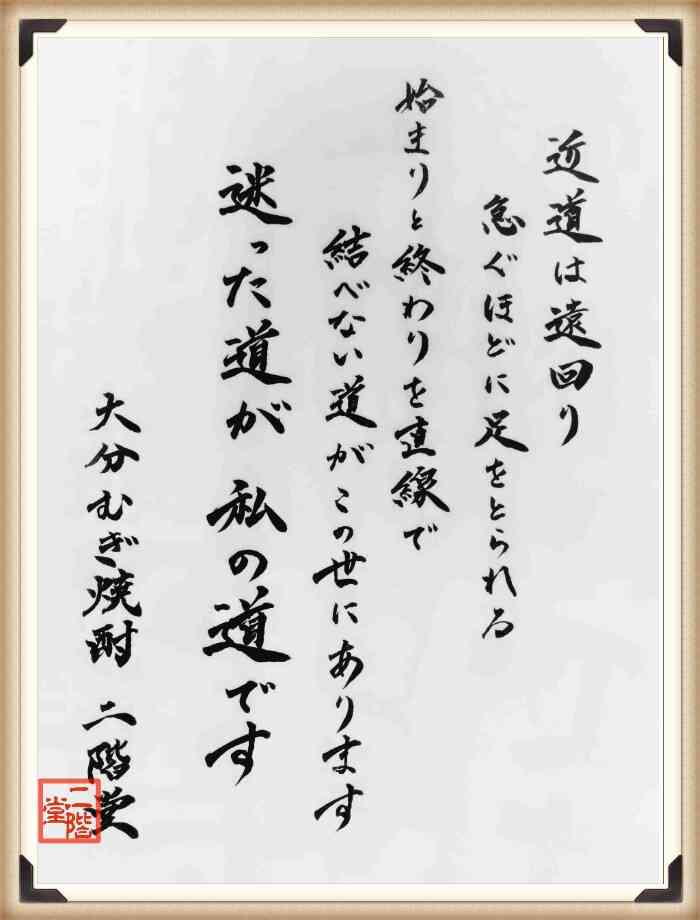 近道は遠回り
急ぐほどに足をとられる
始まりと終わりを直線で
結べない道がこの世にあります
迷った道が 私の道です
大分むぎ焼酎 二階堂
二階堂